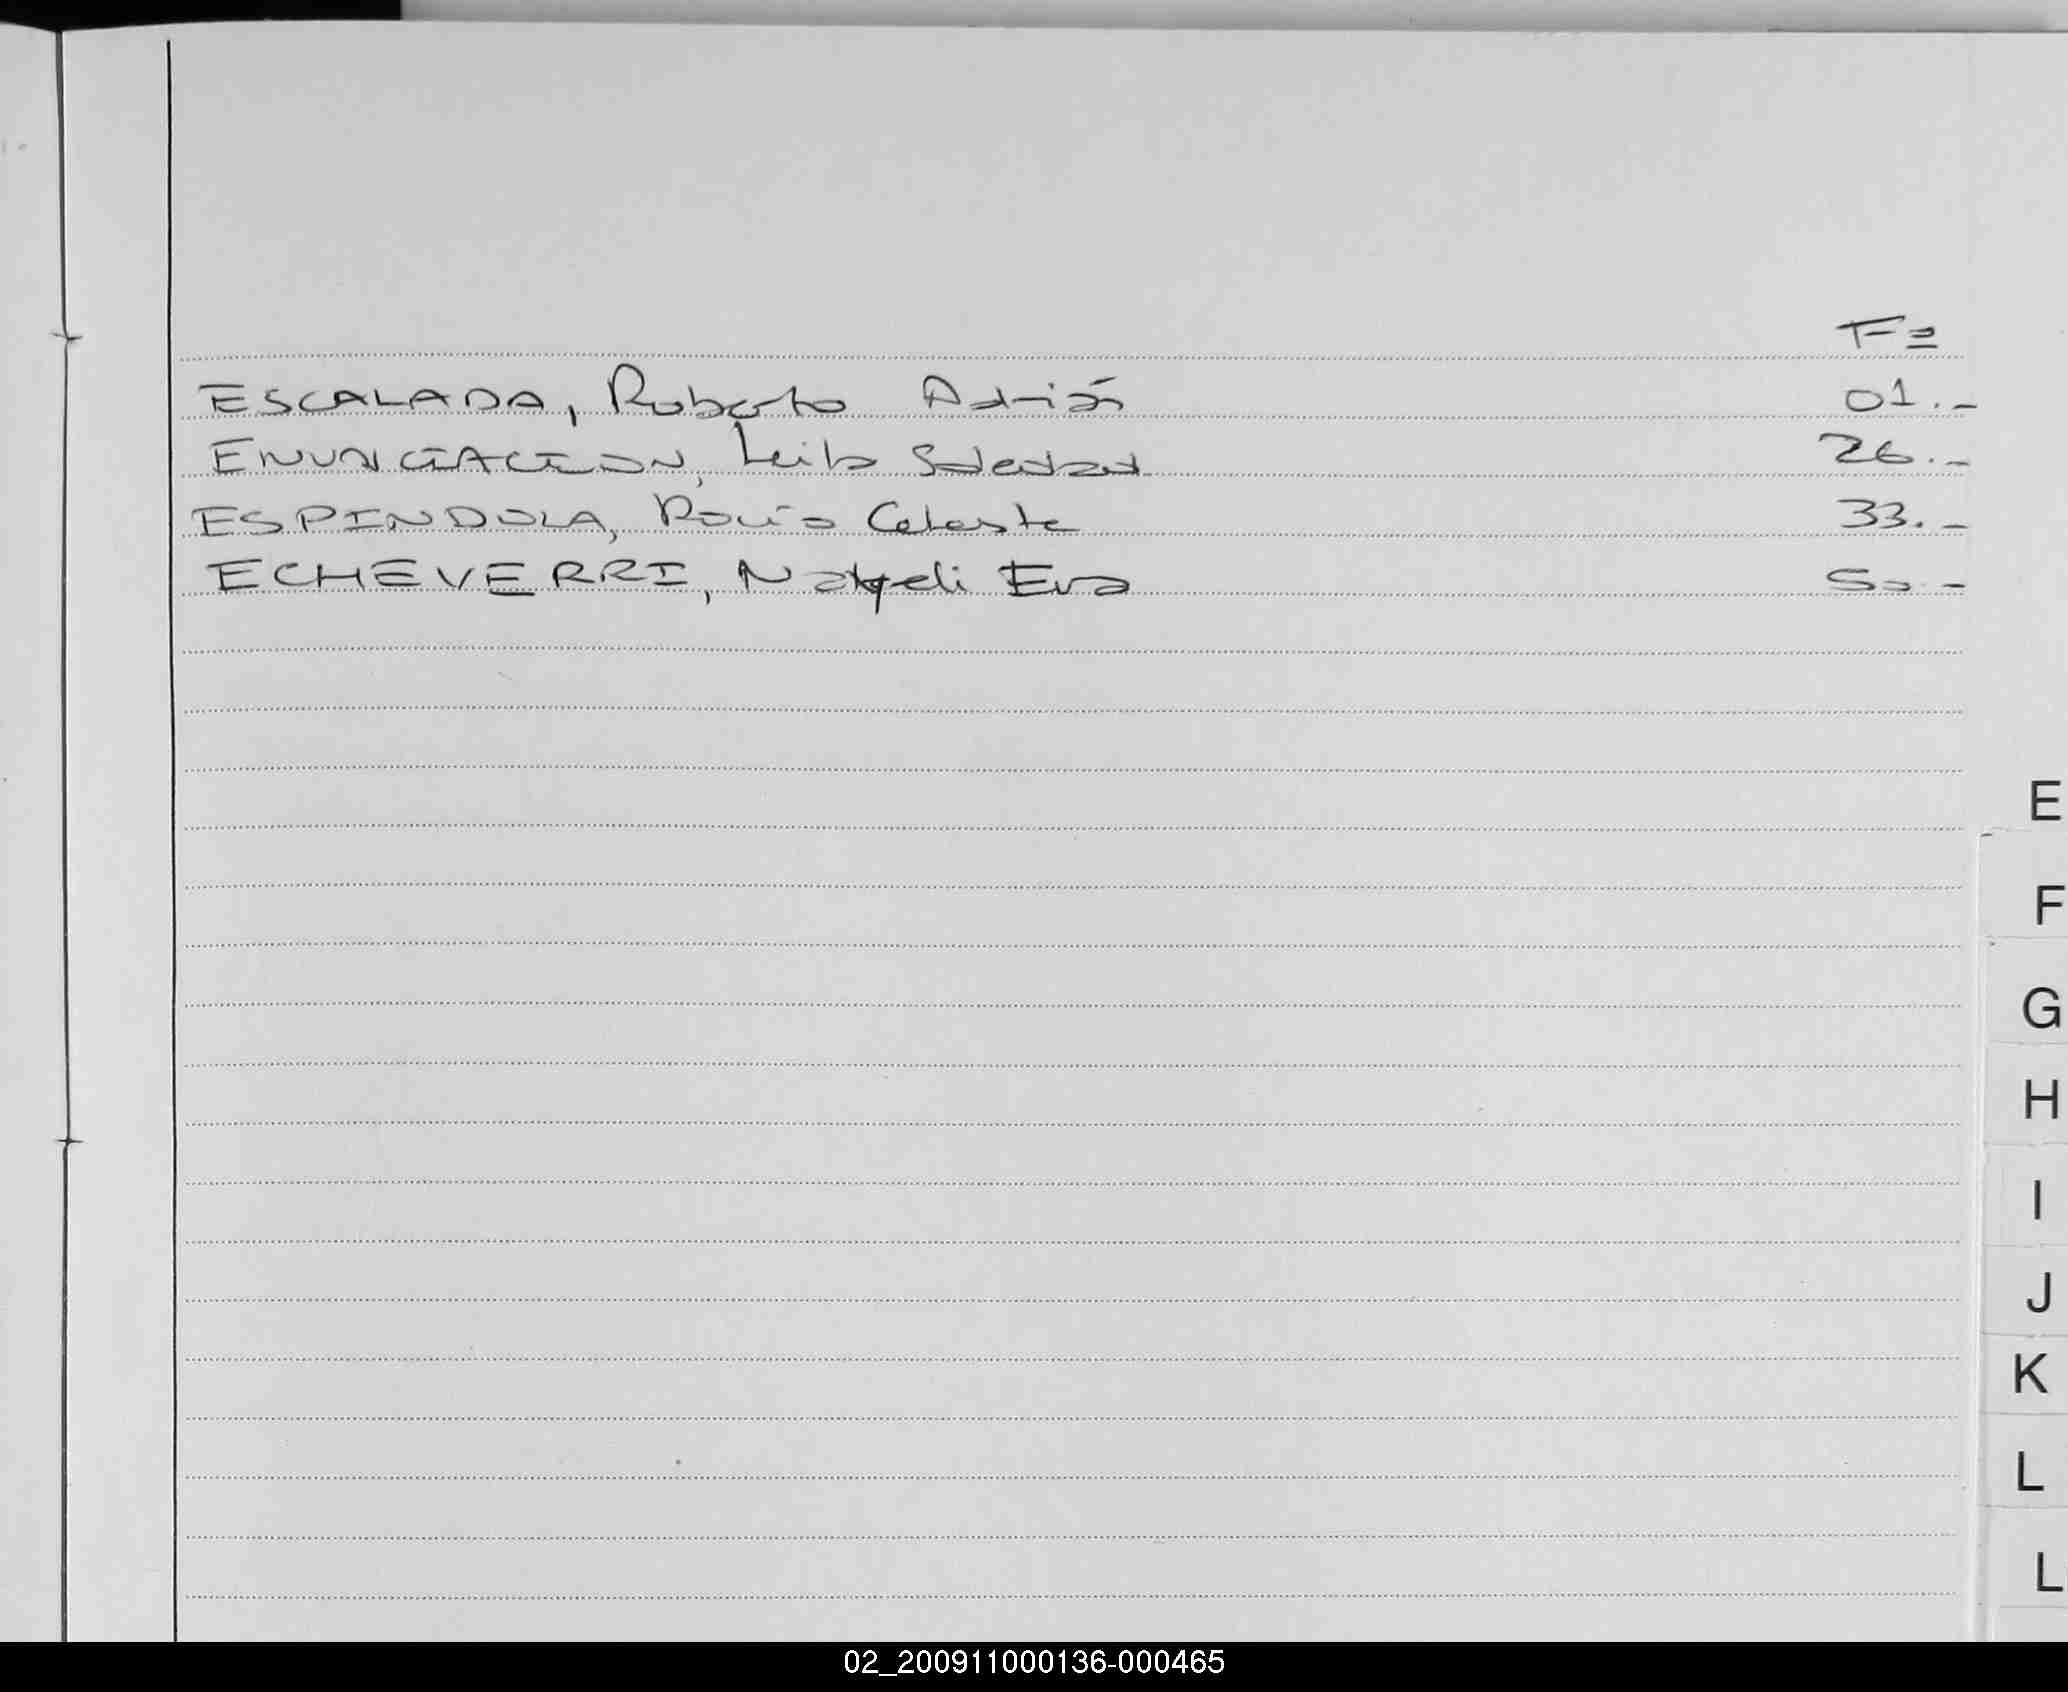 Fº
ESCALADA, Roberto Adrián 01.-
ENUNCIACION, Leila Soledad 26.-
ESPINDOLA, Rocío Celeste 33.-
ECHEVERRI, Nayeli Eva 50.-
E
F
G
H
I
J
K
L
L
02_200911000136-000465